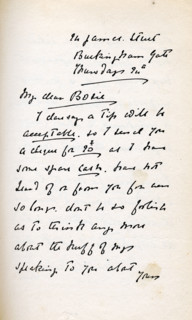 24 James Street
Buckingham Gate
Thursday
My dear Bosie
I daresay a tip will be
acceptable, so I send you
a cheque for as I have
some spare cash. have not
of or from you for
so long. don't be so foolish
as to think any more
about the of my
speaking to you about
yours